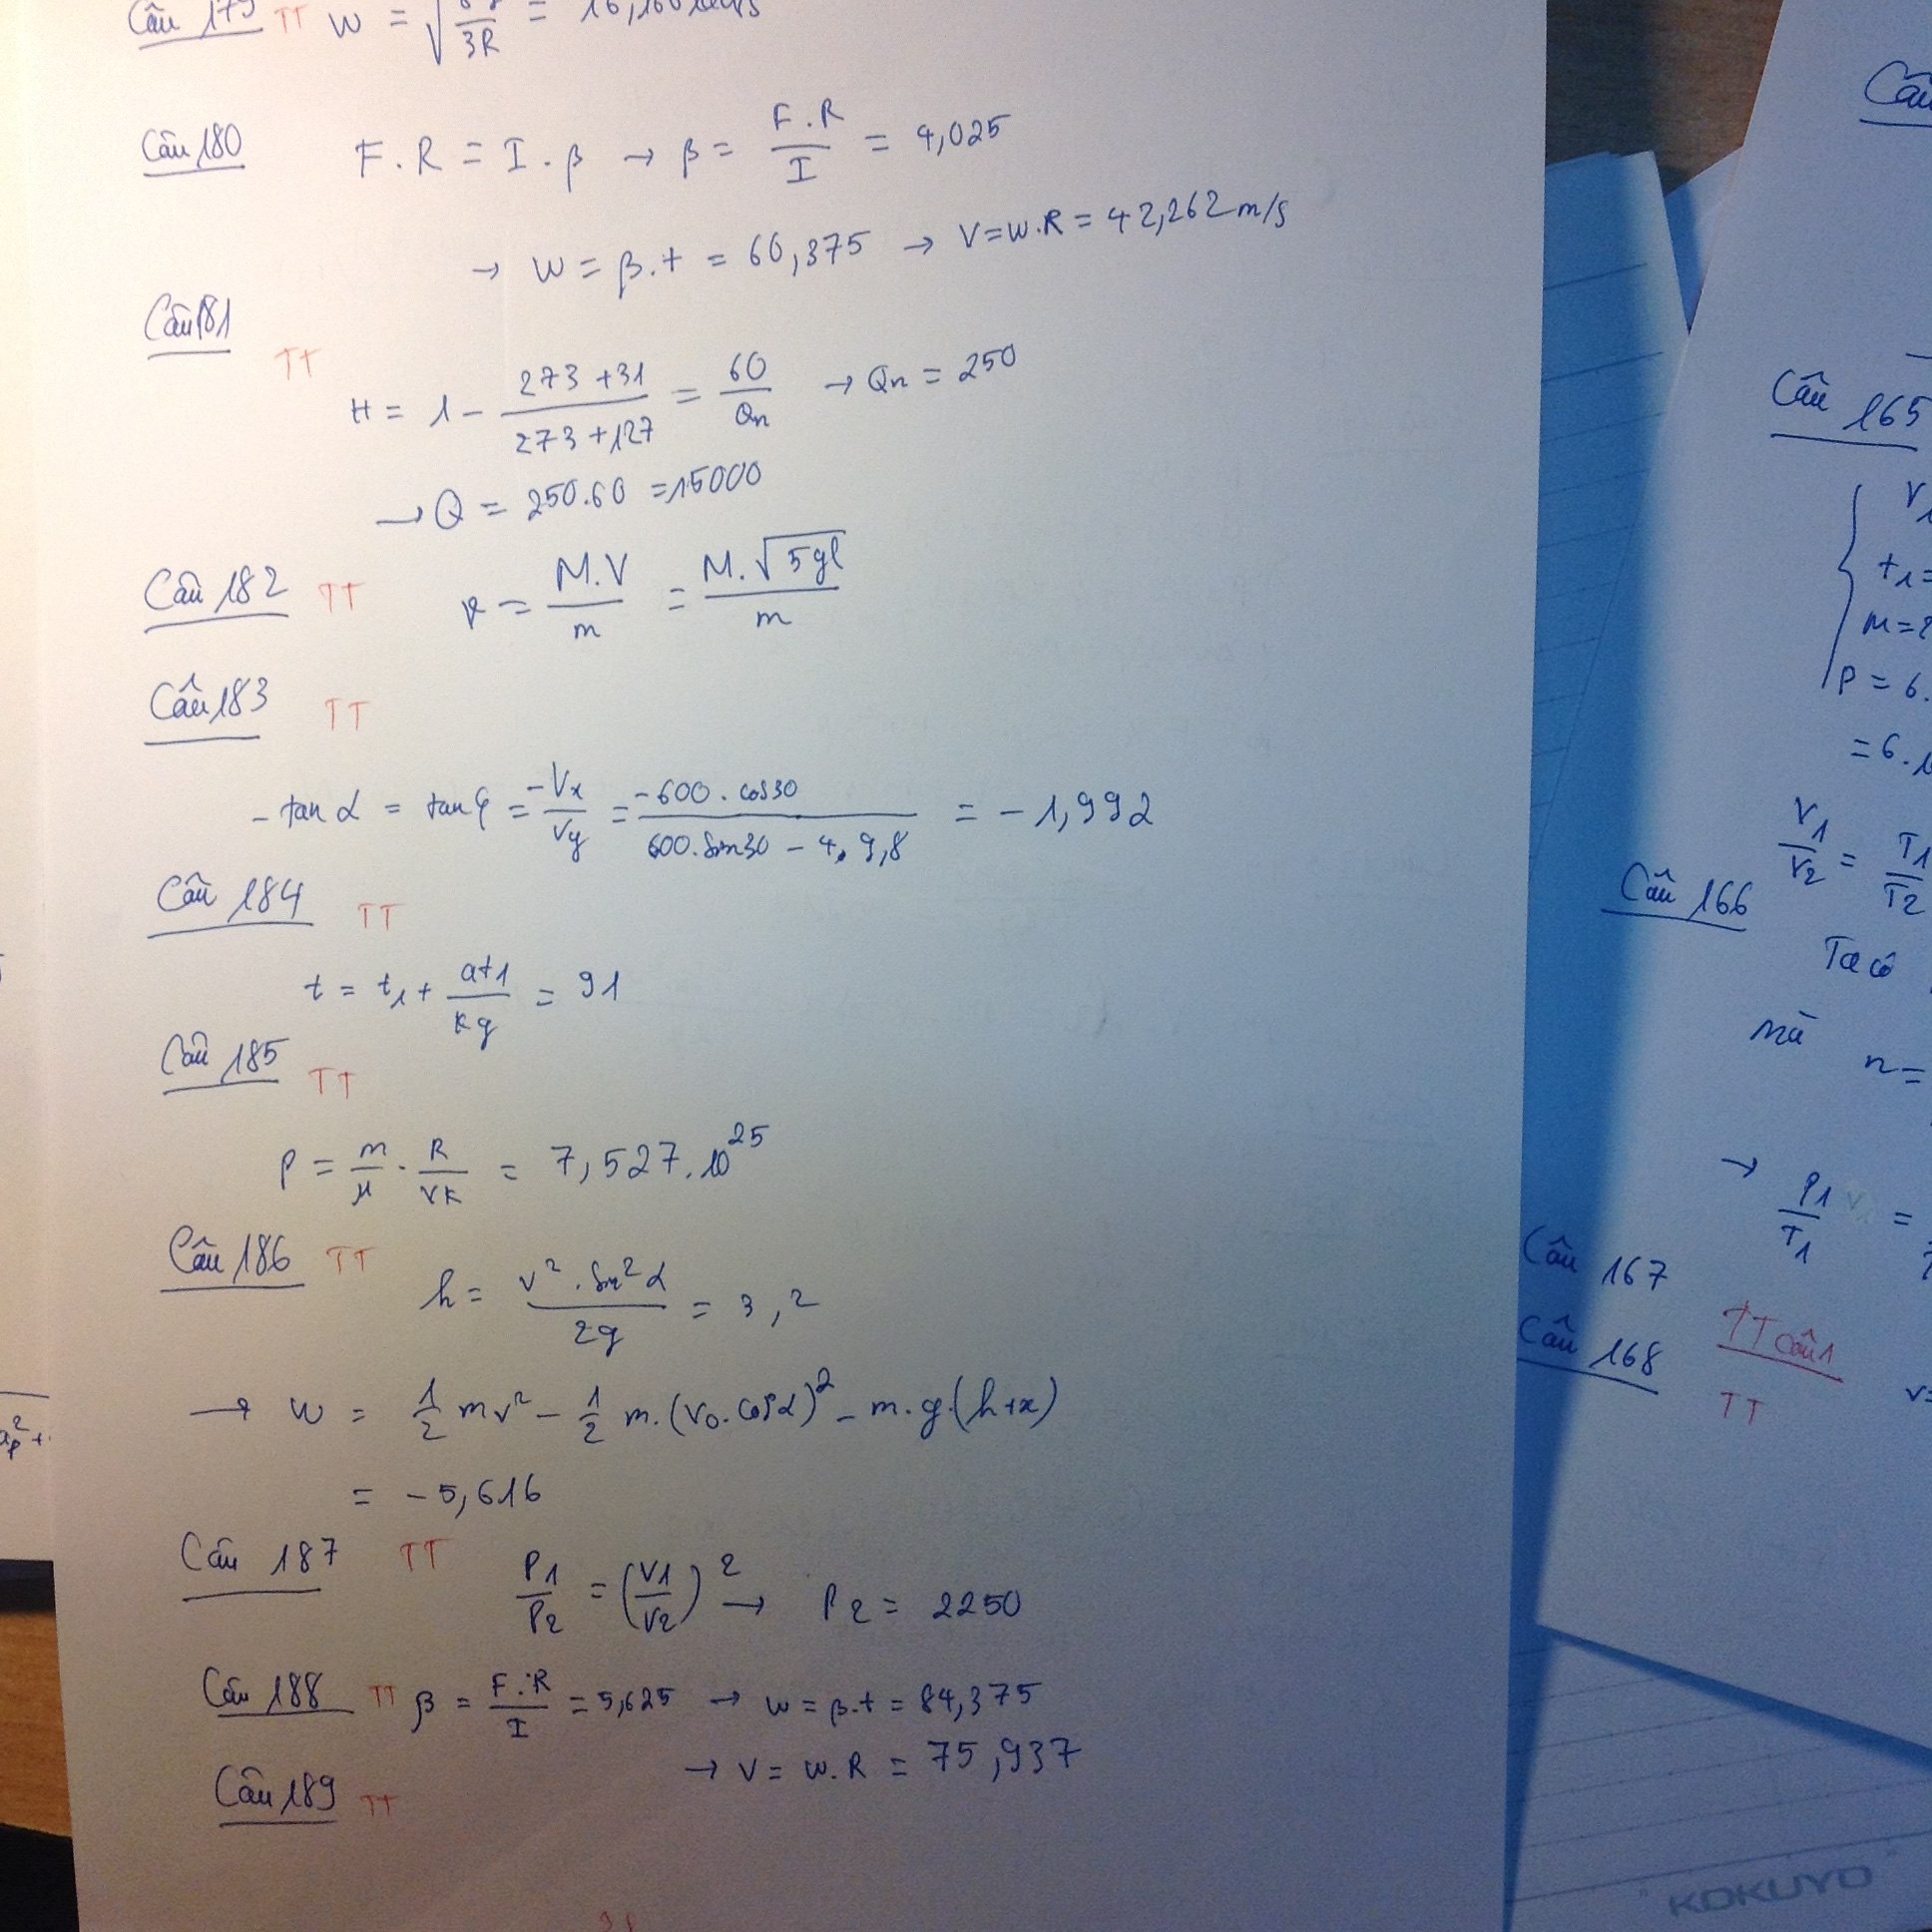 Câu 179 TT W = √ /3R =
Câu 180 F.R = I.β → β = F.R/I = 4,025
→ W = β.t = 60,375 → V=W.R = 42,262 m/s
Câu 181 TT
H = 1 - (273+31)/(273+127) = 60/Qn → Qn = 250
→ Q = 250.60 = 15000
Câu 182 TT v = M.V/m = M.√5gl/m
Câu 183 TT
- tan α = tan φ = -Vx/Vy = -600.cos30/(600.sin30 - 4.9,8) = -1,992
Câu 184 TT
t = t1 + at1/kg = 91
Câu 185 TT
P = m/μ . R/VK = 7,527.10^25
Câu 186 TT h = v².sin²α/2g = 3,2
→ W = 1/2 mv² - 1/2 m.(v0.cosα)² - m.g.(h+x)
= -5,616
Câu 187 TT P1/P2 = (V1/V2)² → P2 = 2250
Câu 188 TT β = F.R/I = 5,625 → W = β.t = 84,375
→ V = W.R = 75,937
Câu 189 TT
Câu 165
t1=
P = 6.
V1/V2 = T1/T2
Câu 166
Ta có
mà
n =
→ P1/T1 =
Câu 167 TT câu 1
Câu 168 TT
KOKUYO